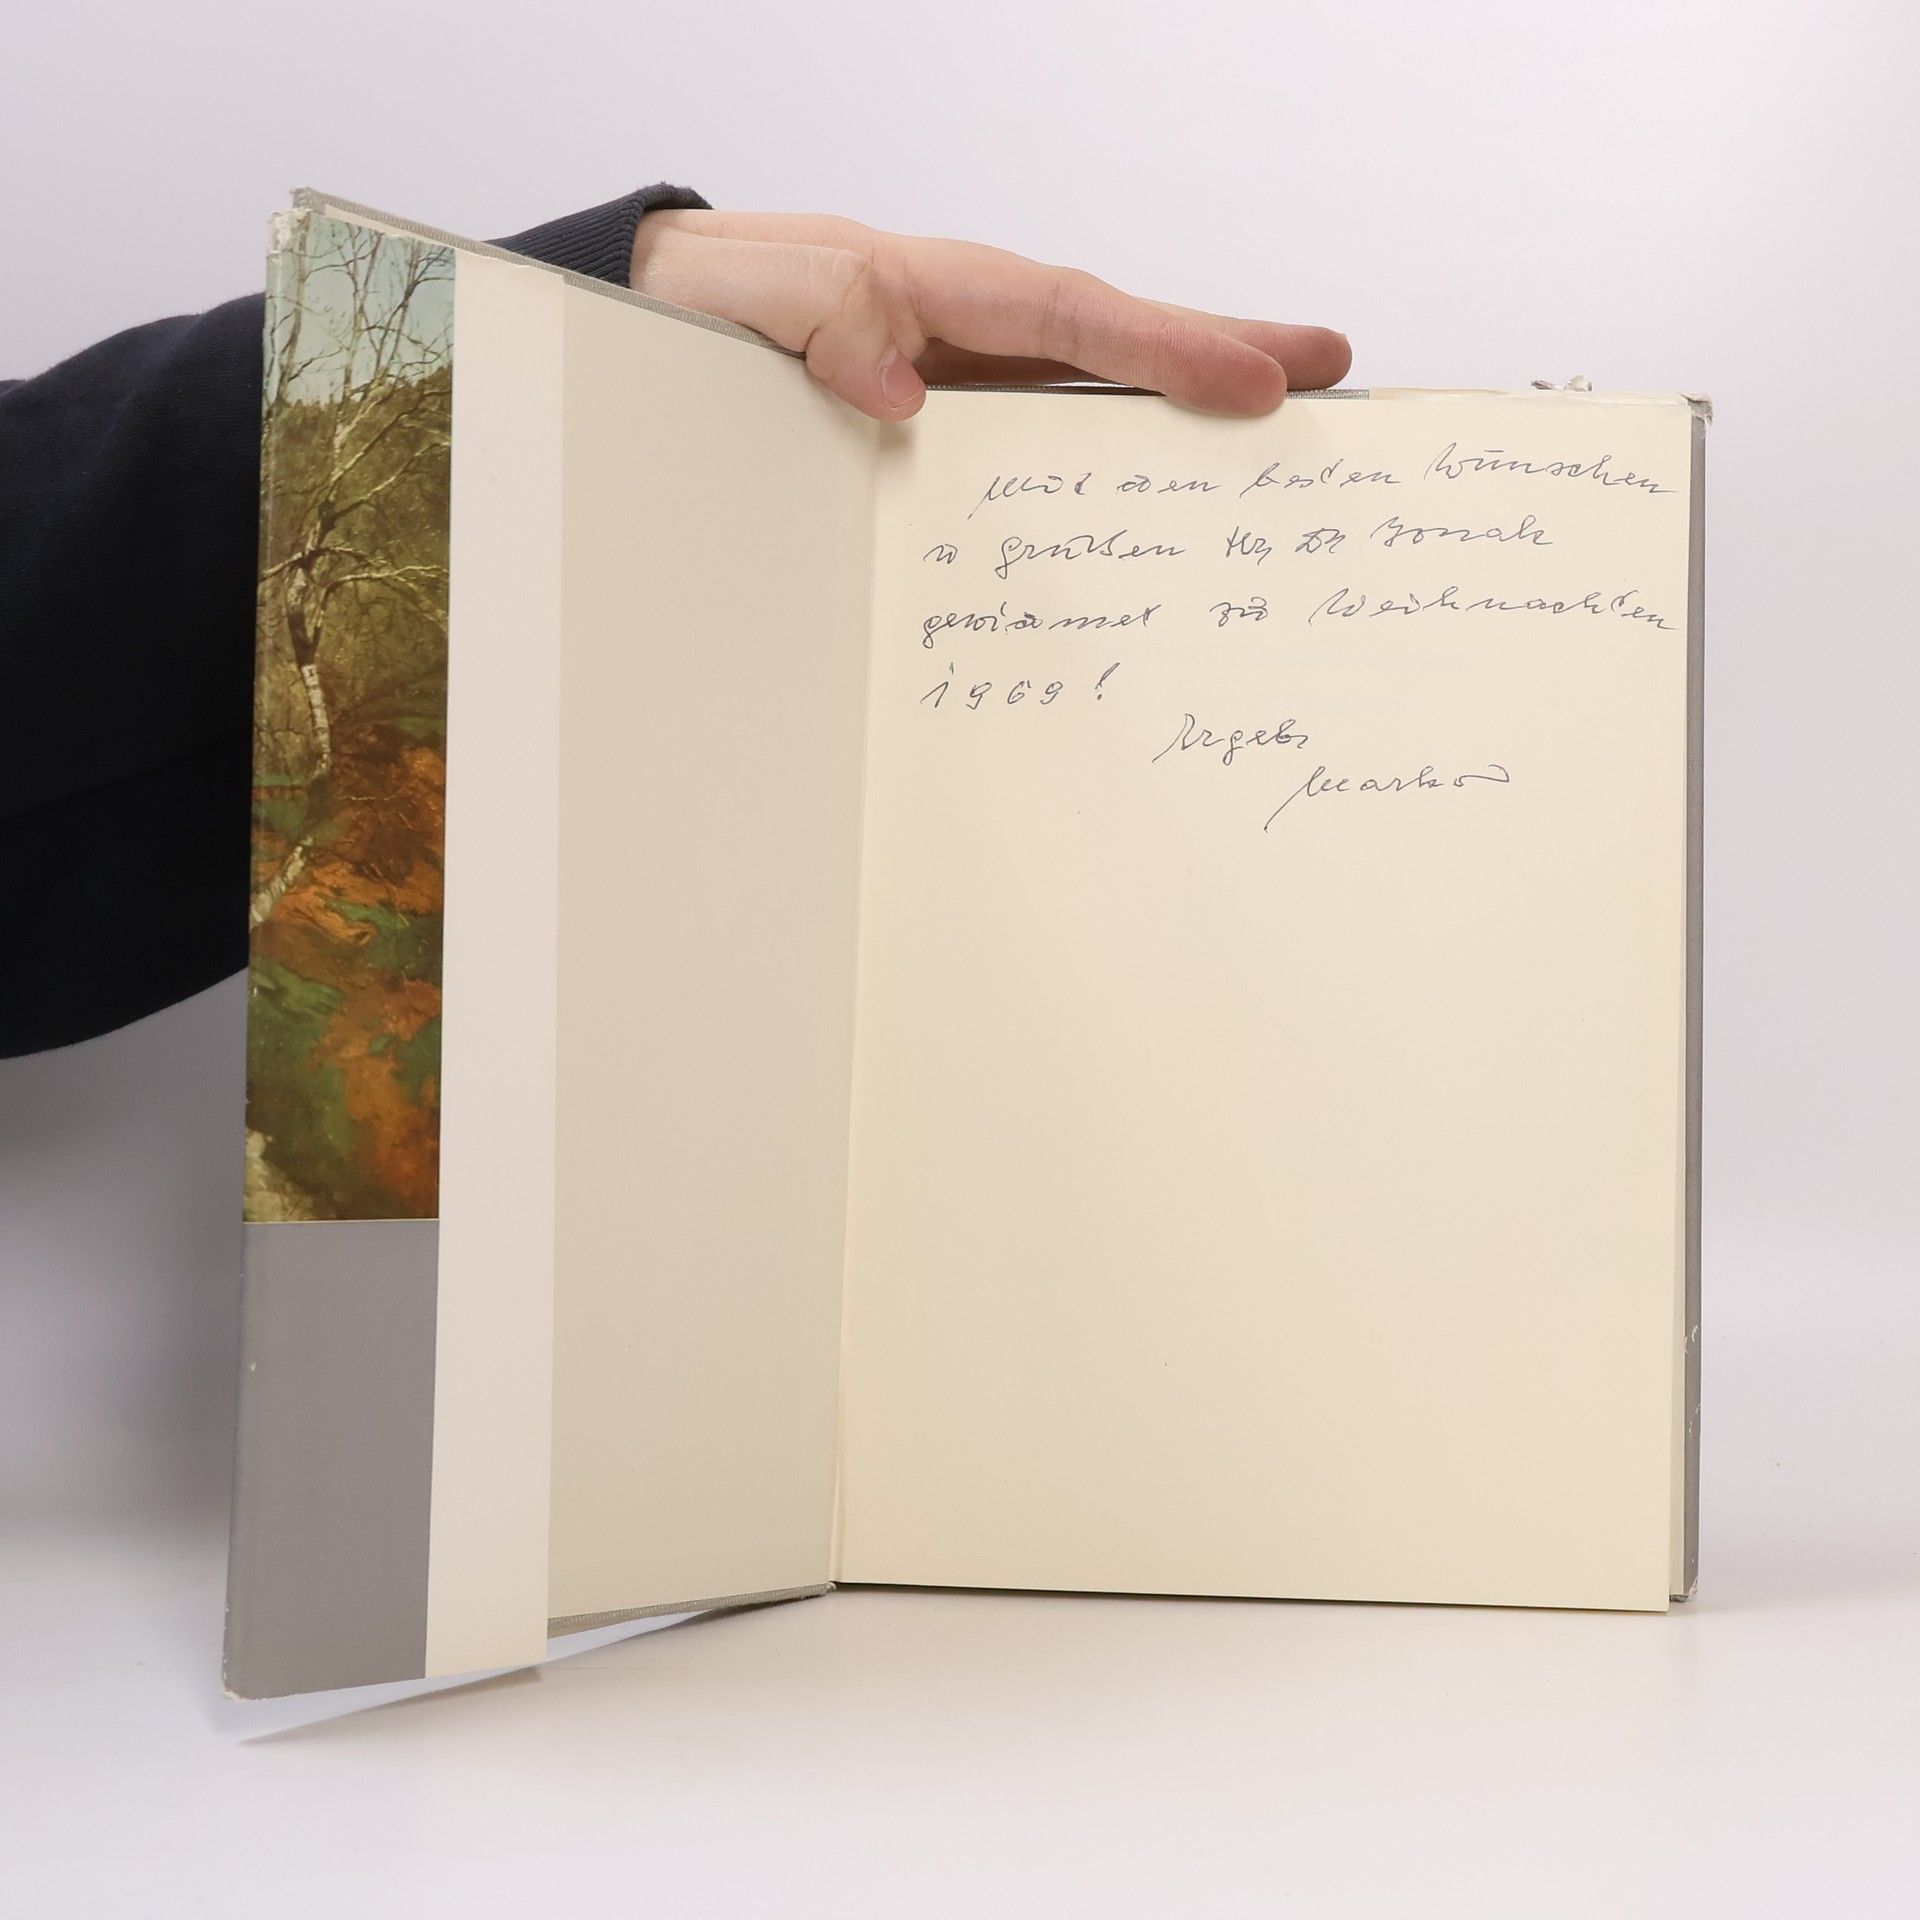 Mit den besten Wünschen
u Grüßen Hr Dr Jonak
gewidmet zu Weihnachten
1969!
Ergeb.
Markov